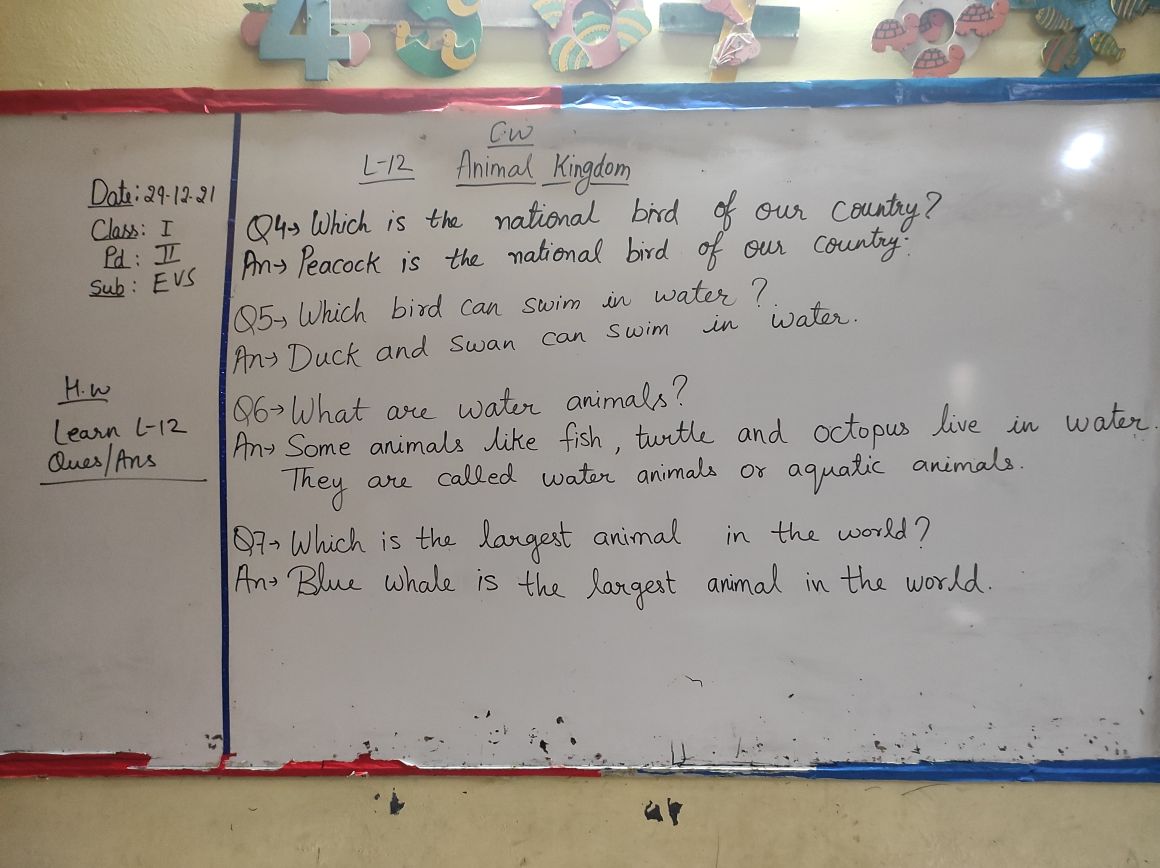 4
Date: 29-12-21
Class: I
Pd: II
Sub: EVS
H.W
Learn L-12
Ques/Ans
C.W
L-12 Animal Kingdom
Q4→ Which is the national bird of our country?
An→ Peacock is the national bird of our country.
Q5→ Which bird can swim in water?
An→ Duck and swan can swim in water.
Q6→ What are water animals?
An→ Some animals like fish, turtle and octopus live in water.
They are called water animals or aquatic animals.
Q7→ Which is the largest animal in the world?
An→ Blue whale is the largest animal in the world.